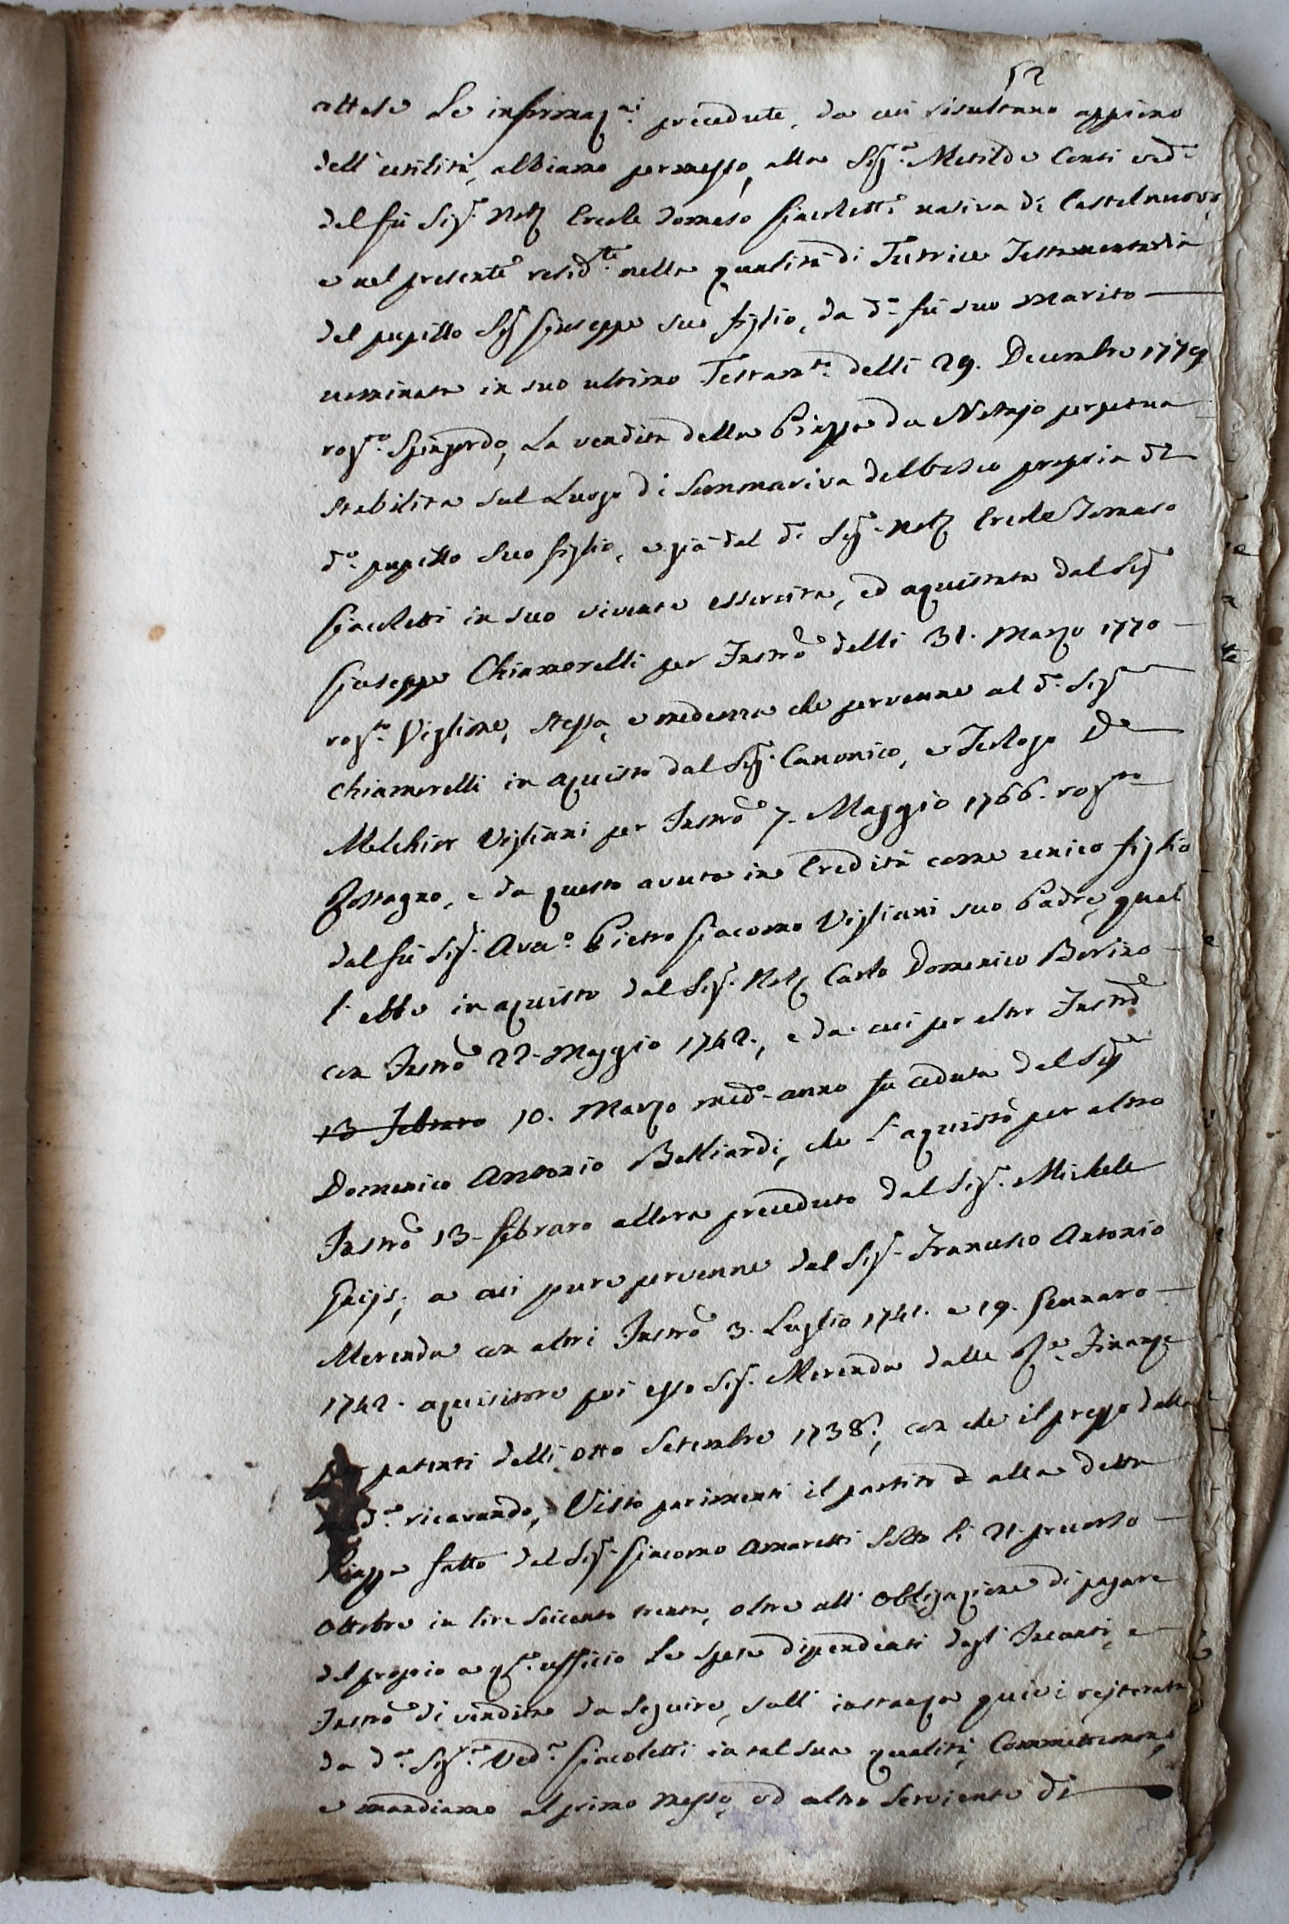 52
attese le informaz.ni precedute, da cui risultano appieno
dell'utilità, abbiamo permesso, alla Sig.ra Metilde Conti ved.a
del fù Sig.r Not.o Ercole Tomaso Giacoletti nativa di Castelnuovo,
e nel presente resid.te nella qualità di Tutrice Testamentaria
del pupillo Sig.r Giuseppe suo figlio, da d.o fù suo Marito
nominata in suo ultimo Testam.to delli 29. Decembre 1779
rog.o La vendita della Piazza da Notajo perpetua
stabilita sul Luogo di Sommariva del bosco propria di
d.o pupillo suo figlio, e già dal d.o Sig.r Not.o Ercole Tomaso
Giacoletti in suo vivente essercita, ed aquistata dal Sig.r
Giuseppe Chiamorelli per Instro.o delli 31. Marzo 1770
rog.to Viglione, stessa, e medema che pervenne al d.o Sig.r
Chiamorelli in aquisto dal Sig.r Canonico, e Teologo D.n
Melchior Vigliani per Instro.o 7. Maggio 1766. rog.to
Rostagno, e da questo avuta in Eredità come unico figlio
dal fù Sig.r Avv.o Pietro Giacomo Vigliani suo Padre, qual
l'ebbe in aquisto dal Sig.r Not.o Carlo Domenico Borino
con Instro.o 22. Maggio 1742., e da cui per altro Instro.o
13 Febraro 10. Marzo med.o anno fu ceduta dal Sig.r
Domenico Antonio Belliardi, che l'aquistò per altro
Instro.o 13. febraro allora preceduto dal Sig.r Michele
a cui pure pervenne dal Sig.r Francesco Antonio
Merenda con altri Instro.i 3. Luglio 1741. e 19. Gennaro
1742. aquisitore poi esso Sig.r Merenda dalle R.e Finanze
patenti delli otto Settembre 1738., con che il prezzo dalla
d.a ricavando, Visto parimenti il partito alla detta
Piazza fatto dal Sig.r Giacomo Amaretti sotto li 21. precorso
Ottobre in lire seicento trenta, oltre all'obligazione di pagare
del proprio a q.to ufficio le spese dipendenti dagl'Incanti, e
Instro.o di vendita da seguire, sull'instanza quivi rejterata
da d.a Sig.ra Ved.a Giacoletti in tal sua qualità, Commettiamo,
e mandiamo al primo Messo, od altro serviente di